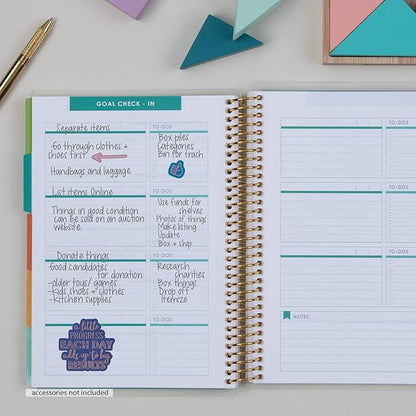 GOAL CHECK - IN
Separate items
TO-DOS
-Go through clothes +
shoes first
Handbags and luggage
Box piles
Categories
Bin for trash
List Items Online
TO-DOS
Things in good condition
can be sold on an auction
website
Use funds for
shelves
Photos of things
Make listing
Update
Box + ship
Donate things
TO-DOS
Good candidates
for donation
-older toys/games
-kids shoes + clothes
-kitchen supplies
Research
charities
Box things
Drop off
Itemize
a little
PROGRESS
EACH DAY
adds up to big
RESULTS
TO-DOS
TO-DOS
TO-DOS
TO-DOS
NOTES:
accessories not included